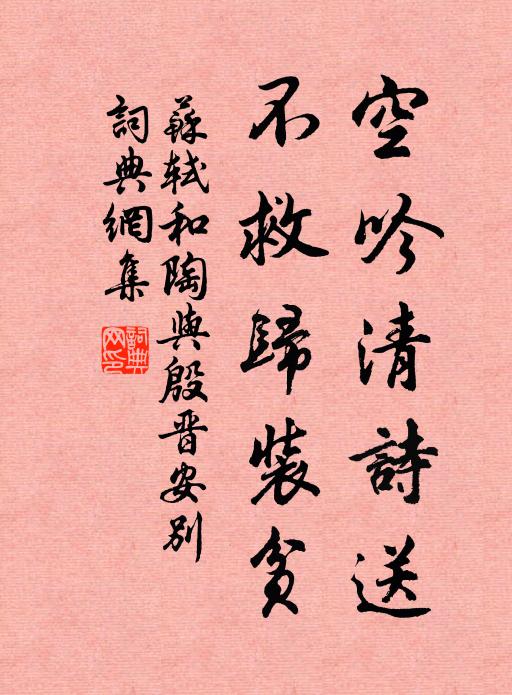 空吟清詩送
不救歸裝貧
蘇軾和陶與殷晋安別
詞典網集
詞典網印